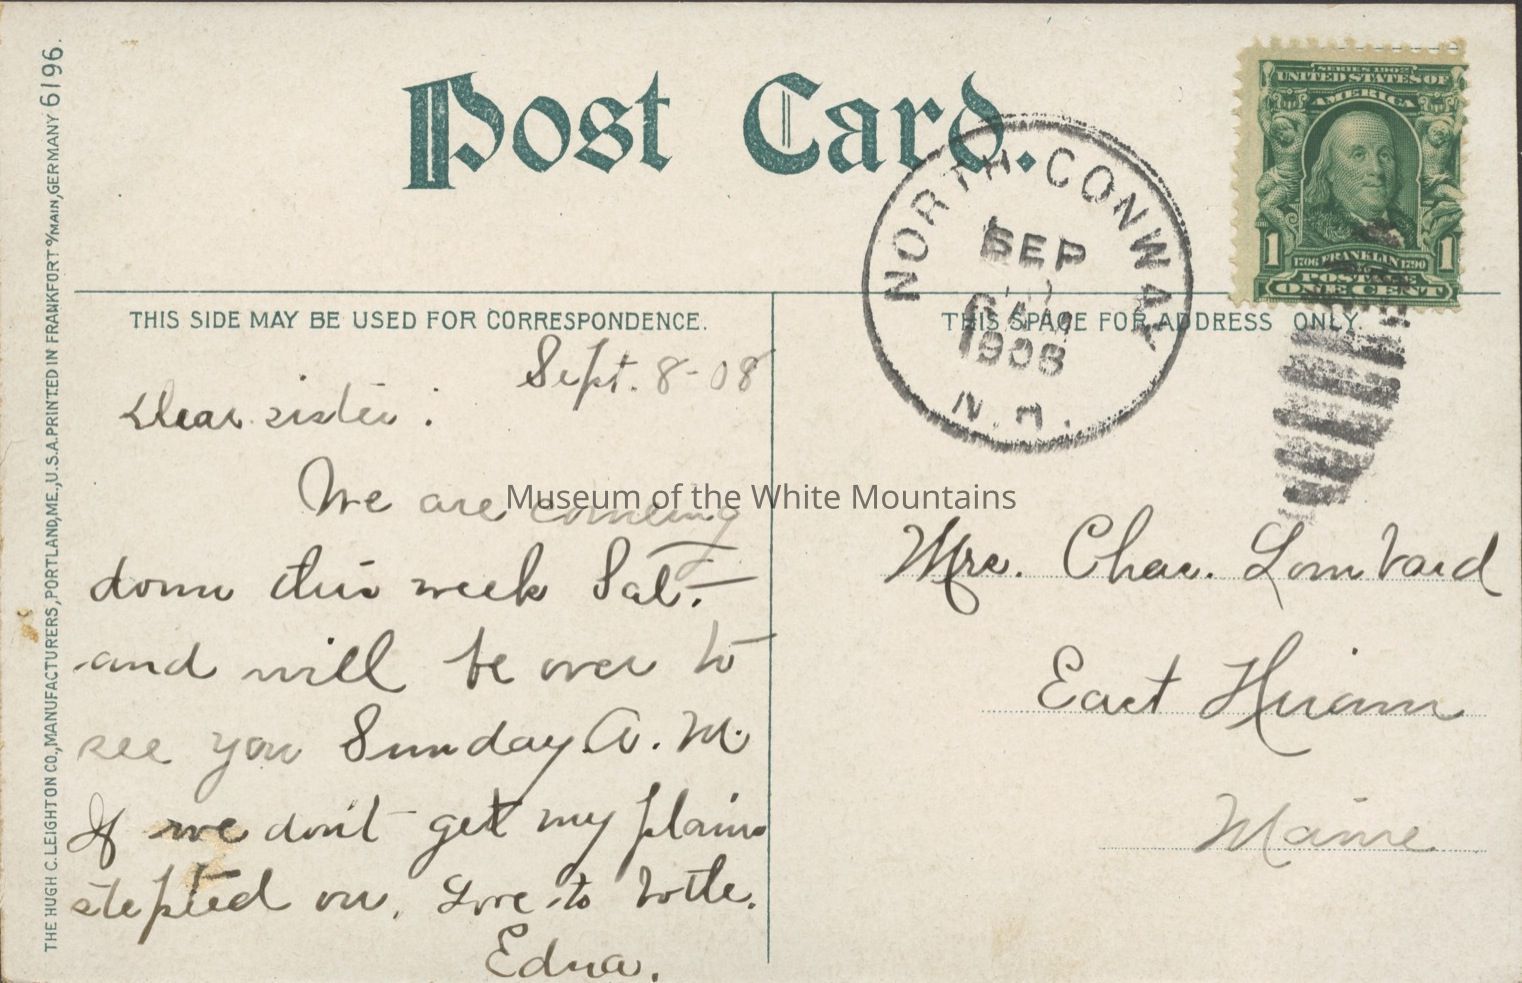 Post Card.
THE HUGH C. LEIGHTON CO., MANUFACTURERS, PORTLAND, ME., U.S.A. PRINTED IN FRANKFORT o/MAIN, GERMANY 6196.
SERIES 1902
UNITED STATES OF
AMERICA
1 1706 FRANKLIN 1790 1
POSTAGE
ONE CENT
NORTH CONWAY
SEP
1908
N.H.
THIS SIDE MAY BE USED FOR CORRESPONDENCE.
Sept. 8-08
Dear sister.
We are comeing
down this week Sat.—
and will be over to
see you Sunday A. M.
If we don't get my plans
stepted on. Love to both.
Edna.
THIS SPACE FOR ADDRESS ONLY.
Mrs. Chas. Lombard
East Hiram
Maine
Museum of the White Mountains